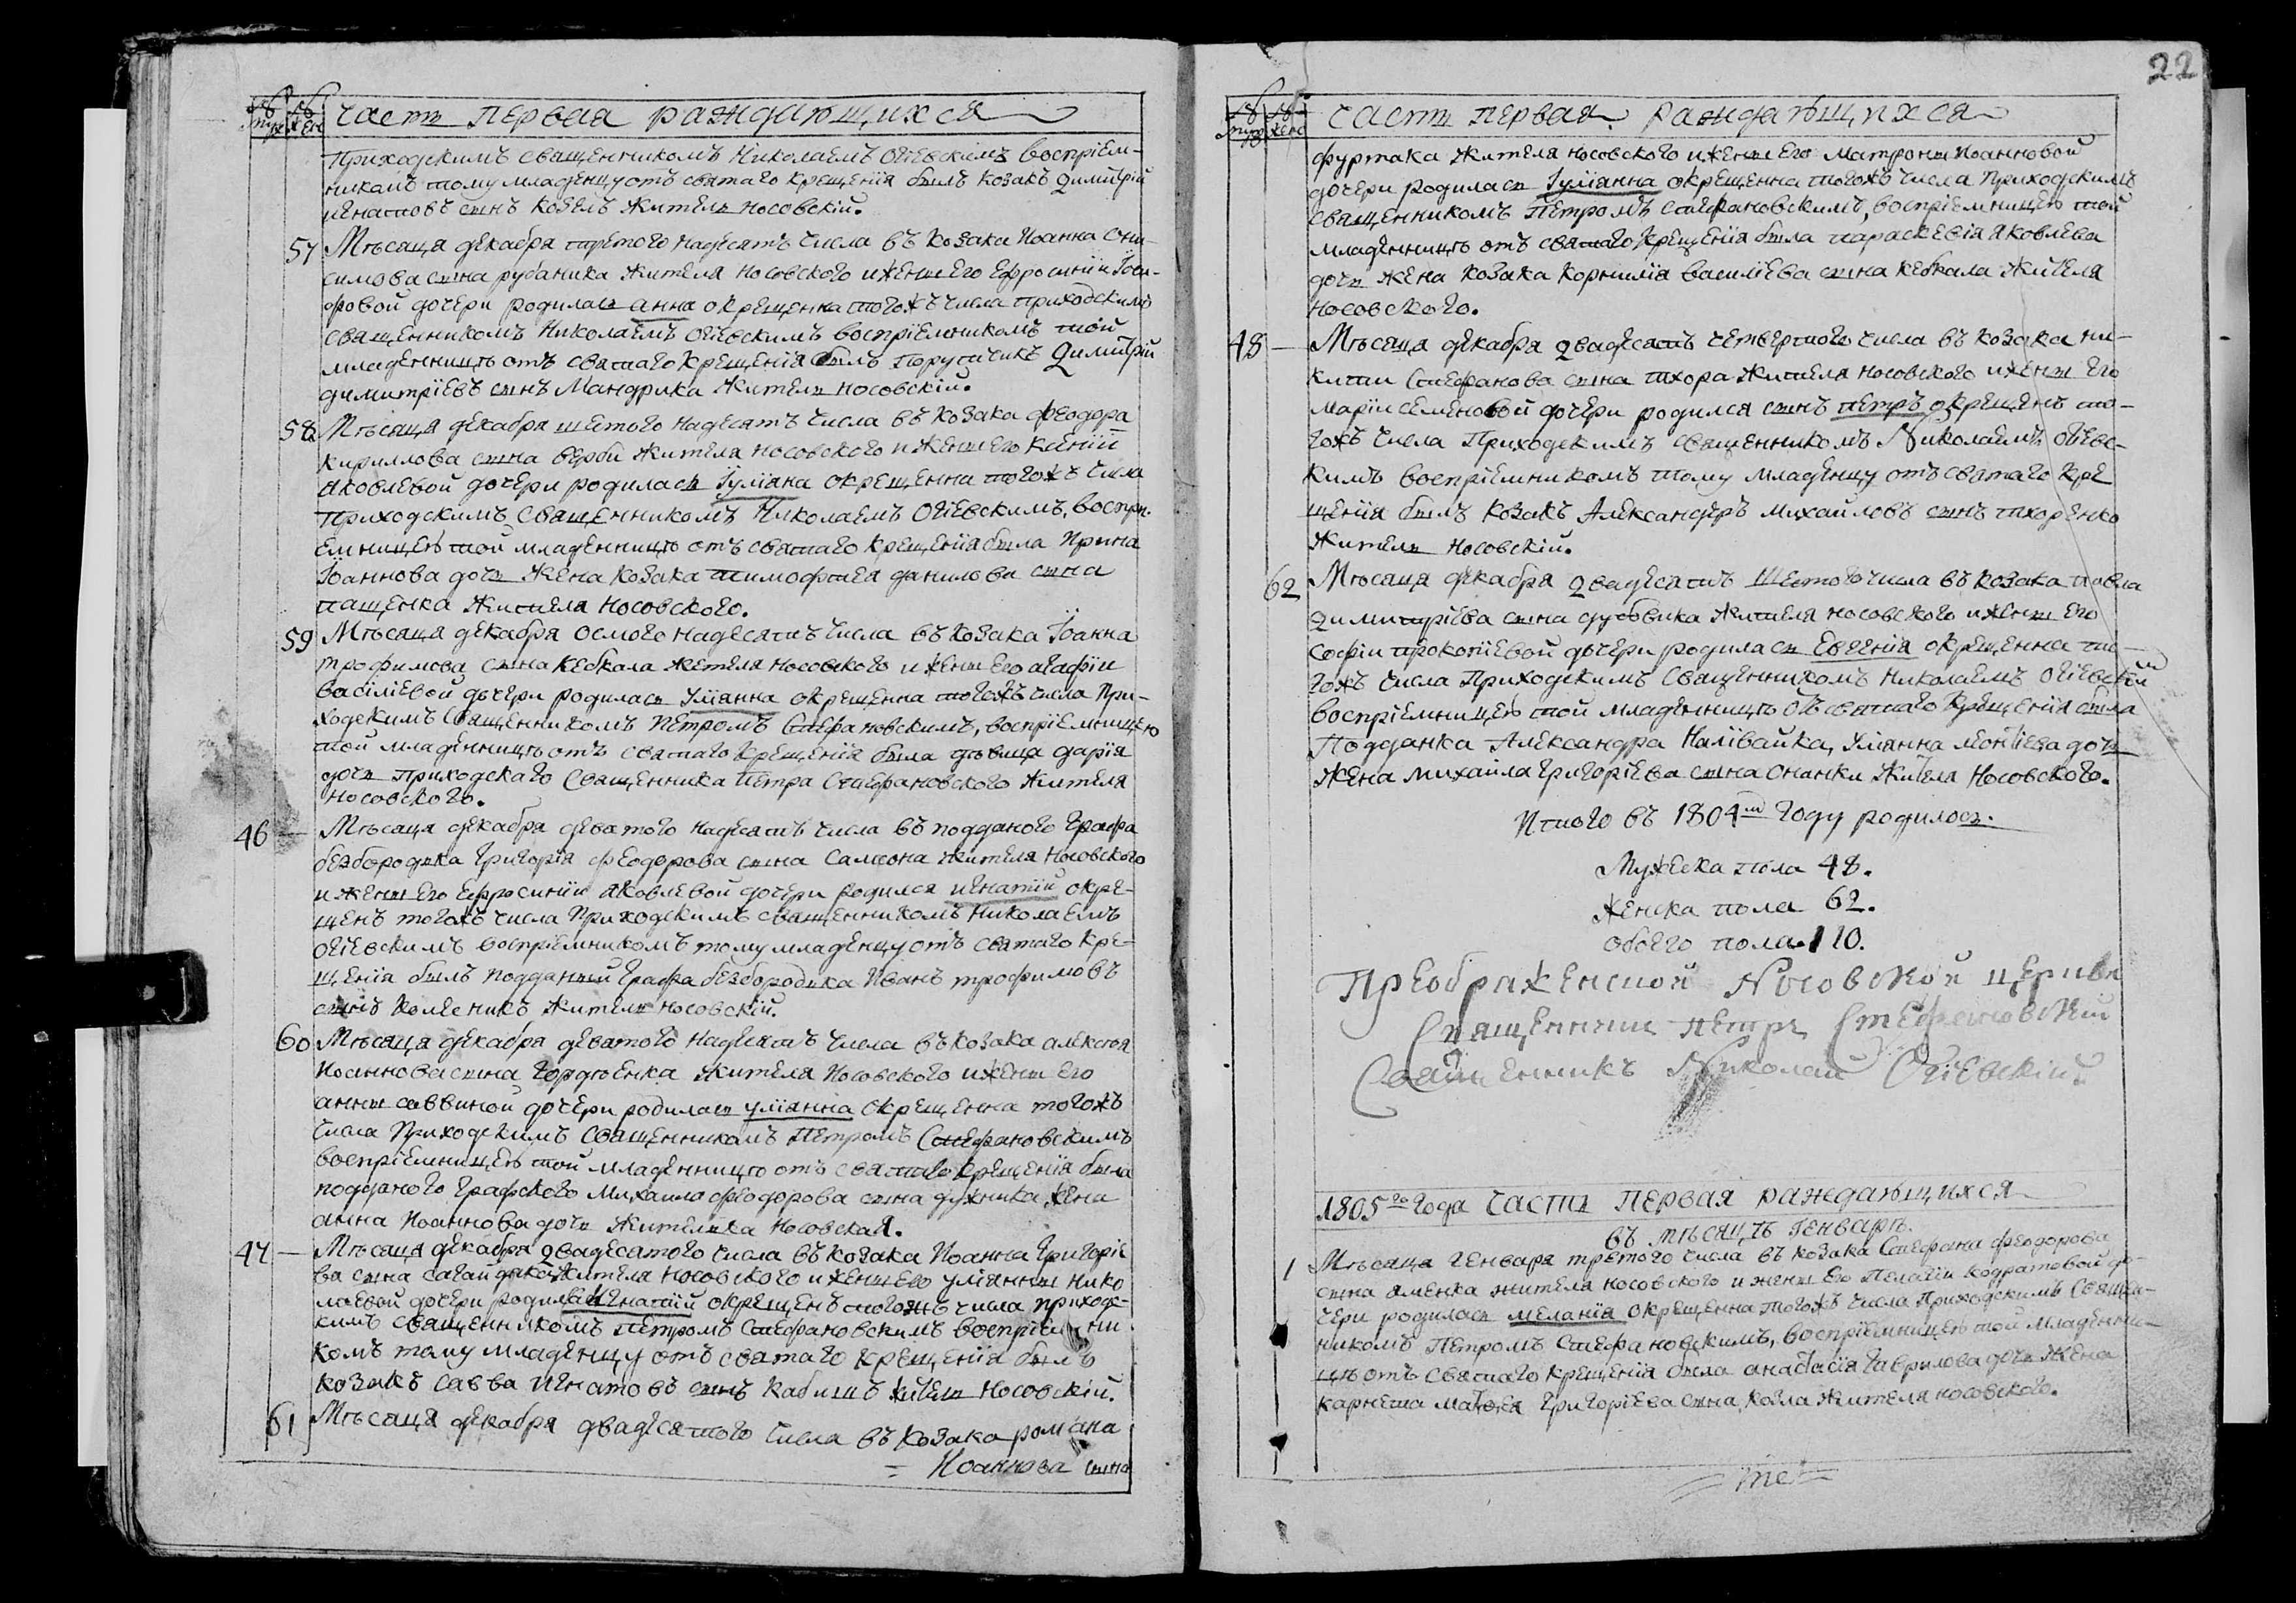 Часть первая раждающихся
приходскимъ священникомъ Николаемъ Огіевскимъ воспріем-
никомъ тому младенцу отъ святаго крещенія былъ козакъ Димитрій
Игнатовъ сынъ Козелъ житель носовскій.
57 Мѣсяца декабря третого надесять числа въ козака Иоанна Они-
симова сына рубаника жителя Носовского и жены его Ефросиніи Іоси-
фовой дочери родилась анна окрещенна тогожъ числа приходскимъ
священникомъ Николаемъ Огіевскимъ воспріемникомъ той
младенницѣ отъ святаго крещенія былъ Порутчикъ Димитрій
димитріевъ сынъ Мандрика житель носовскій.
58 Мѣсяца декабря шестого надесять числа въ козака Феодора
Кириллова сына вербы жителя носовского и жены его Ксеніи
Яковлевой дочери родилась Іуліана окрещенна тогожъ числа
приходскимъ священникомъ Николаемъ Огіевскимъ, воспри-
емницею той младенницѣ отъ святаго крещенія была Ирина
Іоаннова дочь жена козака тимофѣея данилова сына
пащенка жителя Носовского.
59 Мѣсяца декабря осмого надесять числа въ козака Іоанна
трофимова сына кебкала жителя носовского и жены его агафіи
василіевой дочери родилась Уліанна окрещенна тогожъ числа при-
ходскимъ священникомъ Петромъ Стефановскимъ, воспріемницею
той младенницѣ отъ святаго крещенія была дѣвица дарія
дочь приходскаго священника Петра Стефановского жителя
носовского.
46 — Мѣсяца декабря девятого надесять числа въ подданого графа
безбородька григорія феодорова сына Самсона жителя Носовского
и жены его Ефросиніи яковлевой дочери родился игнатій окре-
щенъ тогожъ числа приходскимъ священникомъ Николаемъ
Огіевскимъ воспріемникомъ тому младенцу отъ святаго кре-
щенія былъ подданый графа безбородька Иванъ трофимовъ
сынъ Колесникъ житель носовскій.
60 Мѣсяца декабря девятого надесять числа въ козака алексѣя
Иоаннова сына гордѣенка жителя Носовского и жены его
анны саввиной дочери родилась уліанна окрещенна тогожъ
числа приходскимъ священникомъ Петромъ Стефановскимъ
воспріемницею той младенницѣ отъ святаго крещенія была
подданого графского Михаила феодорова сына дужника жена
анна Иоаннова дочь жителька Носовская.
47 — Мѣсяца декабря двадесятого числа въ козака Иоанна григоріе
ва сына сагайдака жителя Носовского и жены его уліанны нико
лаевой дочери родился Игнатій окрещенъ тогожъ числа приходс-
кимъ священникомъ Петромъ Стефановскимъ воспріемни-
комъ тому младенцу отъ святаго крещенія былъ
козакъ савва Игнатовъ сынъ кабишъ житель Носовскій.
61 Мѣсяца декабря двадесятого числа въ козака романа
= Иоаннова сына
22
Часть первая раждающихся
фуртака жителя носовского и жены его матроны Иоанновой
дочери родилась Іуліанна окрещенна тогожъ числа приходскимъ
священникомъ Петромъ Стефановскимъ, воспріемницею той
младенницѣ отъ святаго крещенія была параскевія яковлева
дочь жена козака корнилія василіева сына кебкала жителя
Носовского.
48 — Мѣсяца декабря двадесять четвертого числа въ козака ни-
киты Стефанова сына тхора жителя носовского и жены его
маріи семеновой дочери родился сынъ петръ окрещенъ то-
гожъ числа Приходскимъ священникомъ Николаемъ Огіевс-
кимъ воспріемникомъ тому младенцу отъ святаго кре
щенія былъ козакъ Александеръ михайловъ сынъ тхоренко
житель носовскій.
62 Мѣсяца декабря двадесять шестого числа въ козака павла
димитріева сына дубовика жителя носовского и жены его
Софіи прокопіевой дочери родилась Евгенія окрещенна то-
гожъ числа Приходскимъ священникомъ Николаемъ Огіевскимъ
воспріемницею той младенницѣ отъ святаго крещенія была
Подданка Александра Налівайка, Уліанна леонтіева дочь
жена михайла григоріева сына Онанки жителя Носовского.
Итого въ 1804м году родилось.
Мужеска пола 48.
Женска пола 62.
Обоего пола 110.
Преображенской Носовской церкви
Священникъ петръ Стефановскій
Священникъ Николай Огіевскій
1805го года Часть первая раждающихся
въ мѣсяцѣ генварѣ.
1 Мѣсяца генваря третого числа въ козака Стефана феодорова
сына яменка жителя носовского и жены его Пелагіи кодратовой до-
чери родилась меланія окрещенна тогожъ числа Приходскимъ священ-
никомъ Петромъ Стефановскимъ, воспріемницею той младенни-
цѣ отъ святаго крещенія была анастасія гаврилова дочь жена
матфея григоріева сына козла жителя носовского.